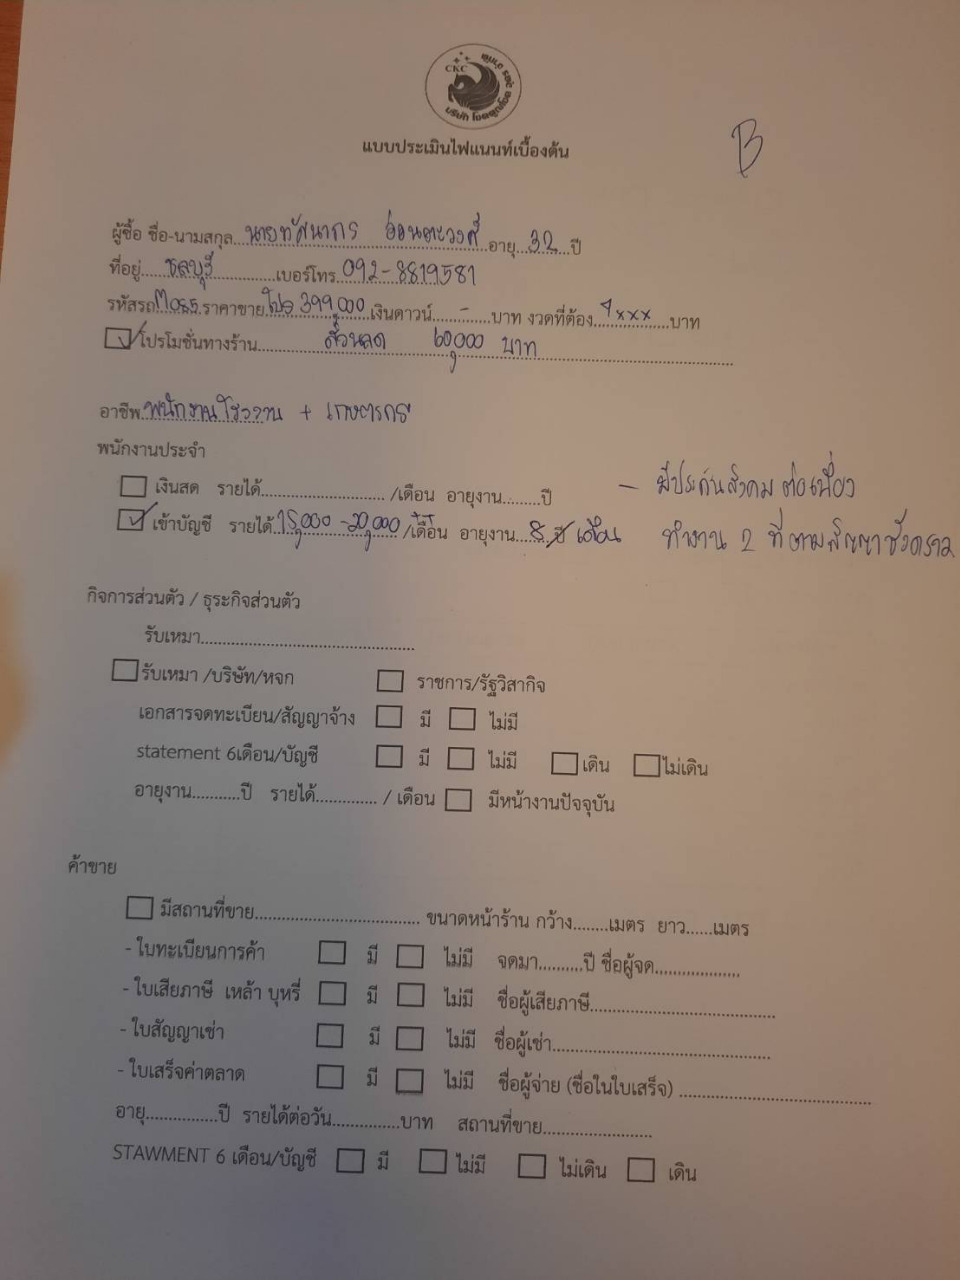 CKC
แบบประเมินไฟแนนท์เบื้องต้น
B
ผู้ซื้อ ชื่อ-นามสกุล...นายทัศนากร อ่อนตะวงศ์...อายุ...32...ปี
ที่อยู่......ชลบุรี......เบอร์โทร 092-8819581
รหัสรถ M085 ราคาขาย โปร 399,000 เงินดาวน์...-...บาท งวดที่ต้อง...7xxx...บาท
โปรโมชั่นทางร้าน......ส่วนลด 60,000 บาท......
อาชีพ พนักงานโรงงาน + เกษตรกร
พนักงานประจำ
เงินสด รายได้........................./เดือน อายุงาน........ปี - มีประกันสังคม ต่อเนื่อง
เข้าบัญชี รายได้ 15,000 -20,000 /เดือน อายุงาน...8 ปี เดือน ทำงาน 2 ที่ตามสัญญาชั่วคราว
กิจการส่วนตัว / ธุระกิจส่วนตัว
รับเหมา...........................................
รับเหมา /บริษัท/หจก ราชการ/รัฐวิสากิจ
เอกสารจดทะเบียน/สัญญาจ้าง มี ไม่มี
statement 6เดือน/บัญชี มี ไม่มี เดิน ไม่เดิน
อายุงาน..........ปี รายได้............. / เดือน มีหน้างานปัจจุบัน
ค้าขาย
มีสถานที่ขาย................................. ขนาดหน้าร้าน กว้าง........เมตร ยาว......เมตร
- ใบทะเบียนการค้า มี ไม่มี จดมา..........ปี ชื่อผู้จด.................
- ใบเสียภาษี เหล้า บุหรี่ มี ไม่มี ชื่อผู้เสียภาษี.....................................
- ใบสัญญาเช่า มี ไม่มี ชื่อผู้เช่า...........................................
- ใบเสร็จค่าตลาด มี ไม่มี ชื่อผู้จ่าย (ชื่อในใบเสร็จ) ......................................
อายุ...............ปี รายได้ต่อวัน..............บาท สถานที่ขาย.....................
STAWMENT 6 เดือน/บัญชี มี ไม่มี ไม่เดิน เดิน